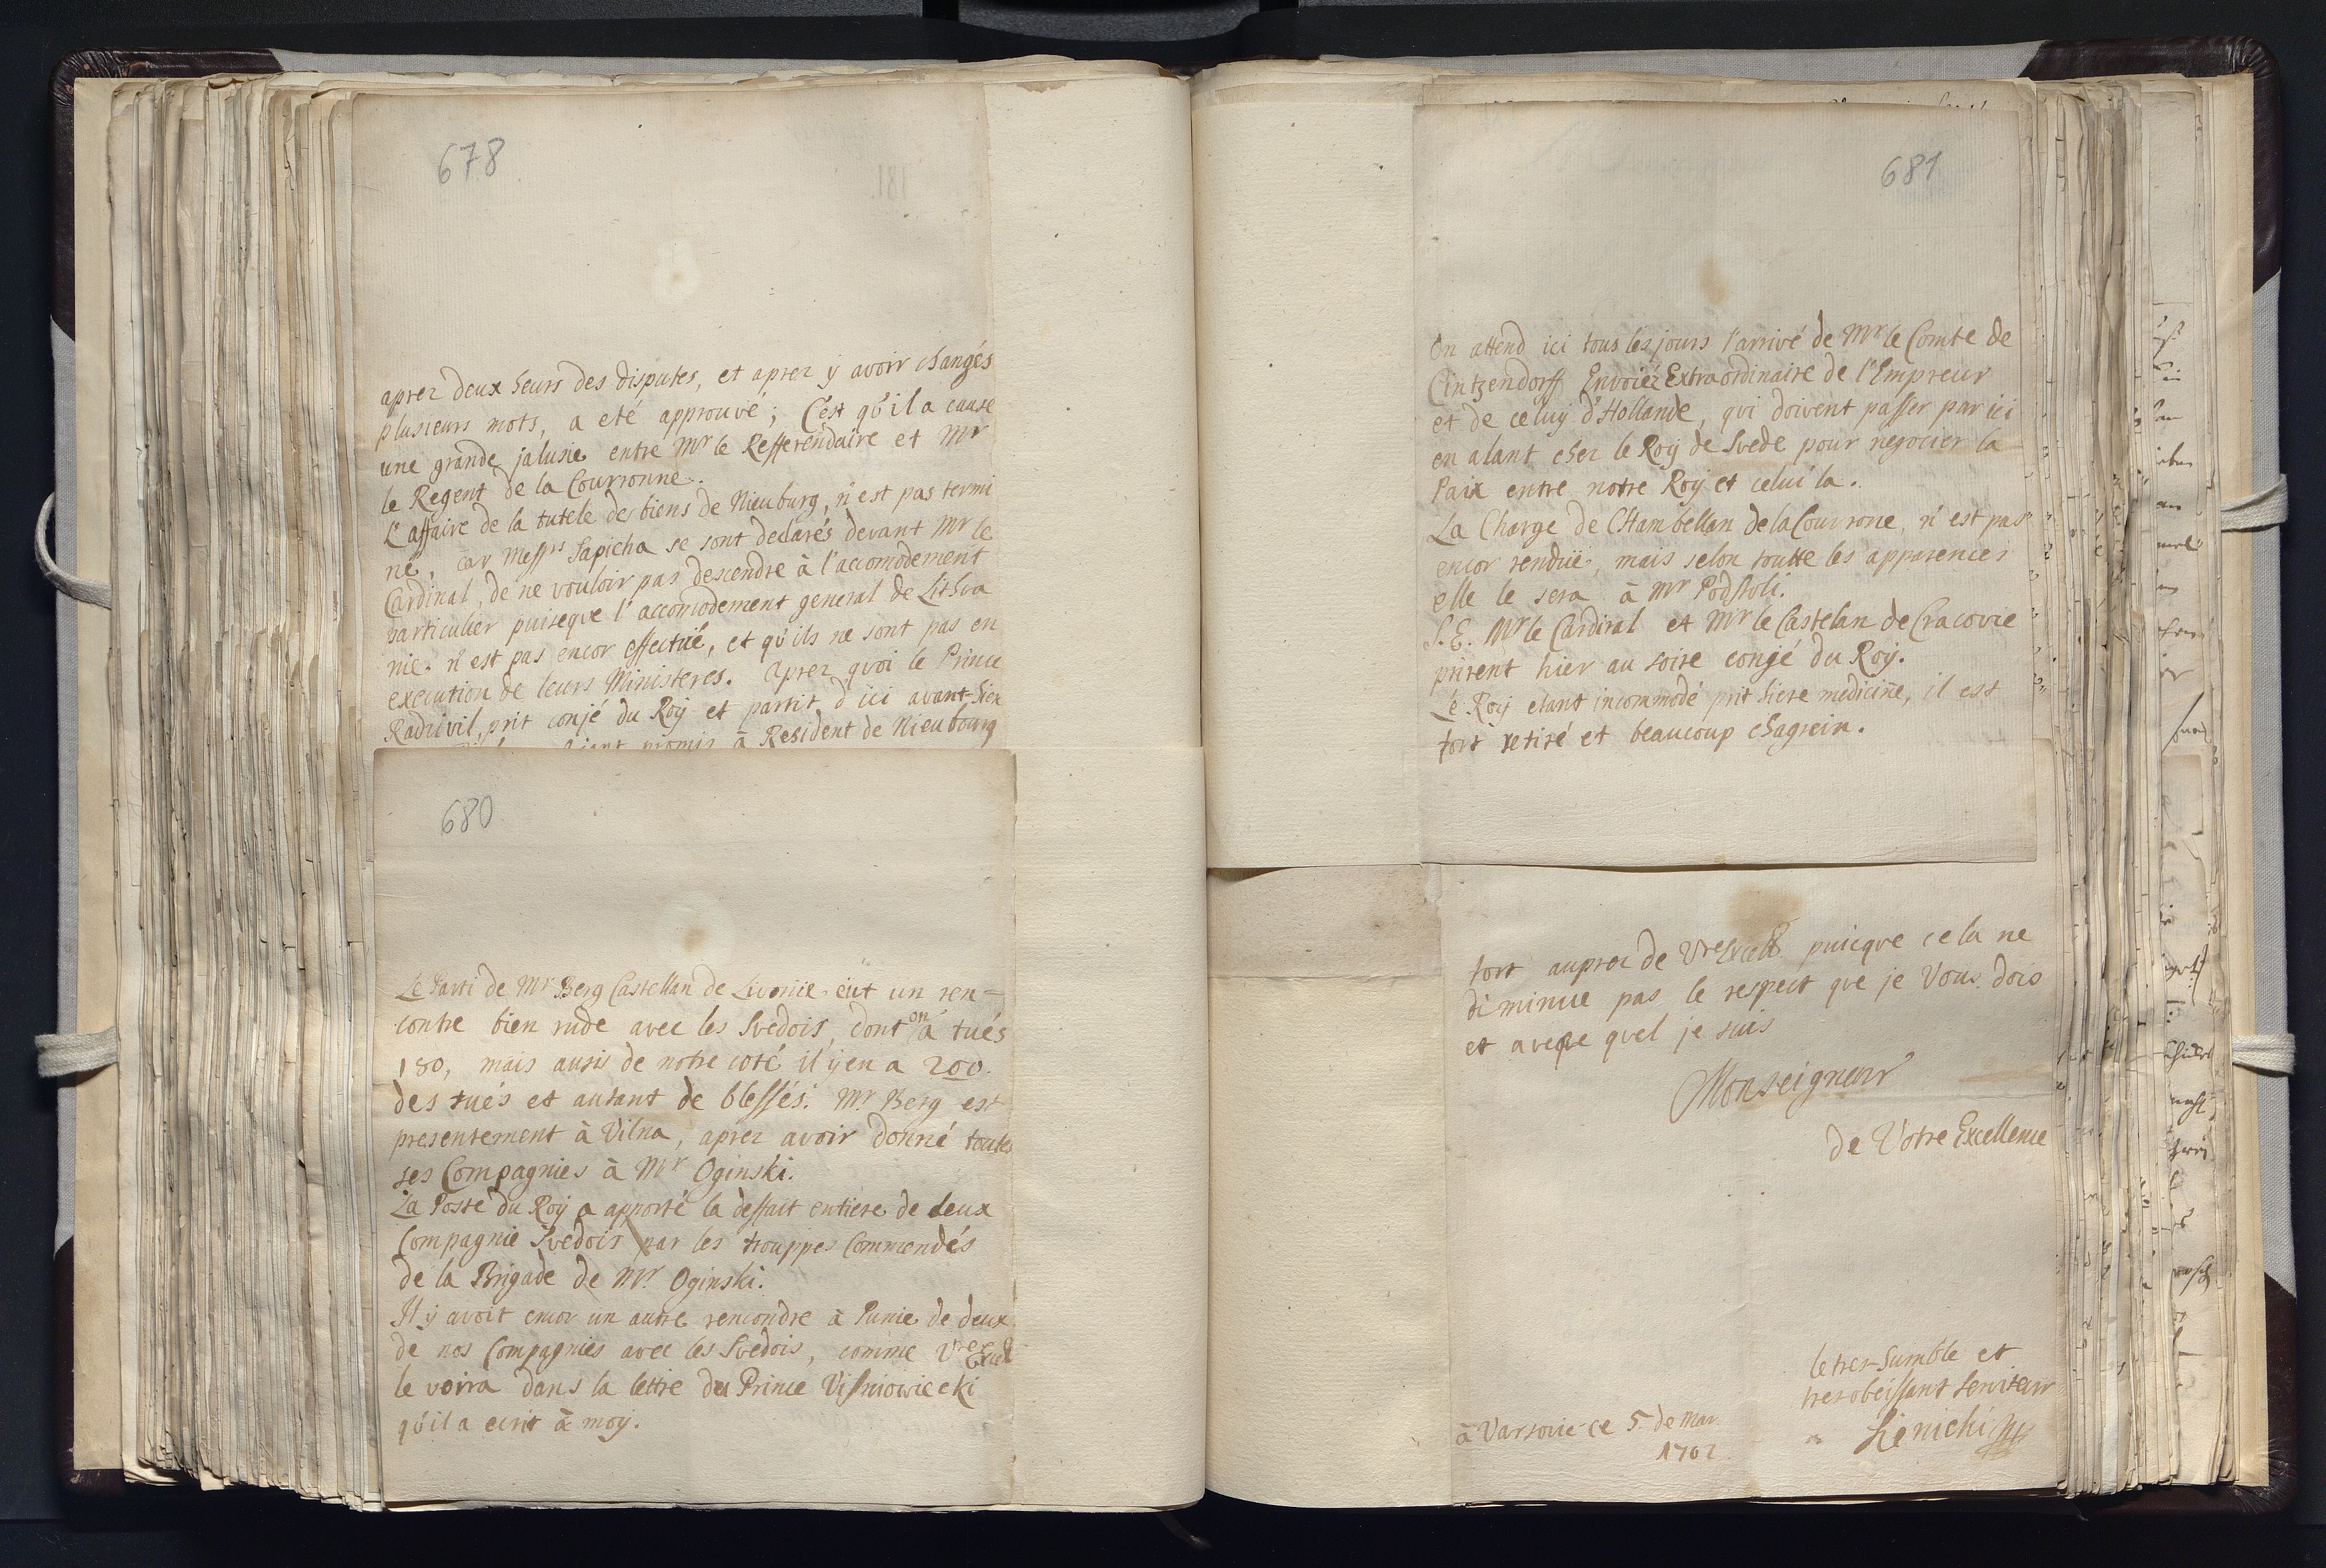 678
aprez deux heurs des disputes, et aprez ÿ avoir changés
plusieurs mots, a eté approuvé; C'est qu'il a cause
une grande jalusie entre Mr le Refferendaire et Mr
le Regent de la Courronne.
L'affaire de la tutele des biens de Nieuburg, n'est pas termi
né, car Messrs Sapieha se sont declarés devant Mr le
Cardinal, de ne vouloir pas descendre à l'accomodement
particulier puiseque l'accomodement general de Lithva
nie n'est pas encor effectüé, et qu'ils ne sont pas en
execution de leurs Ministeres. Aprez quoi le Prince
Radzivil, prit conjé du Roÿ et partit d'ici avant-hier
aiant promis à Resident de Nieubourg
680
Le Parti de Mr Berg Castellan de Livonie eüt un ren-
contre bien rude avec les Svedois, dont on a tués
180, mais ausis de notre coté il ÿ en a 200.
des tués et autant de blessés. Mr Berg est
presentement à Vilna, aprez avoir donné toutes
ses Compagnies à Mr Oginski.
La Poste du Roÿ a apporté la deffait entiere de deux
Compagnie Svedois par les trouppes Commendés
de la Brigade de Mr Oginski.
Il ÿ avoit encor un autre rencondre à Punie de deux
de nos Compagnies avec les Svedois, comme Vre Excell
le voira dans la lettre du Prince Visniowiecki
qu'il a ecrit à moÿ.
681
On attend ici tous les jours l'arrivé de Mr le Comte de
Cintzendorff Envoiéz Extraordinaire de l'Empreur
et de celuy d'Hollande, qui doivent passer par ici
en alant chez le Roÿ de Svede pour negocier la
Paix entre notre Roÿ et celui la.
La Charge de CHambellan de la Courrone, n'est pas
encor rendüe, mais selon toutte les apparences
elle le sera à Mr Podstoli.
S. E. Mr le Cardinal et Mr le Castelan de Cracovie
prirent hier au soire congé du Roÿ.
Le Roÿ etant incommodé prit hiere medicine, il est
fort retiré et beaucoup chagrein.
tort auprez de Vre Excell puicque cela ne
diminue pas le respect que je Vous dois
et aveque quel je suis
Monseigneur
de Votre Excellence
le tres-humble et
tres obeissant serviteur
à Varsovie ce 5. de Mar.
1702.